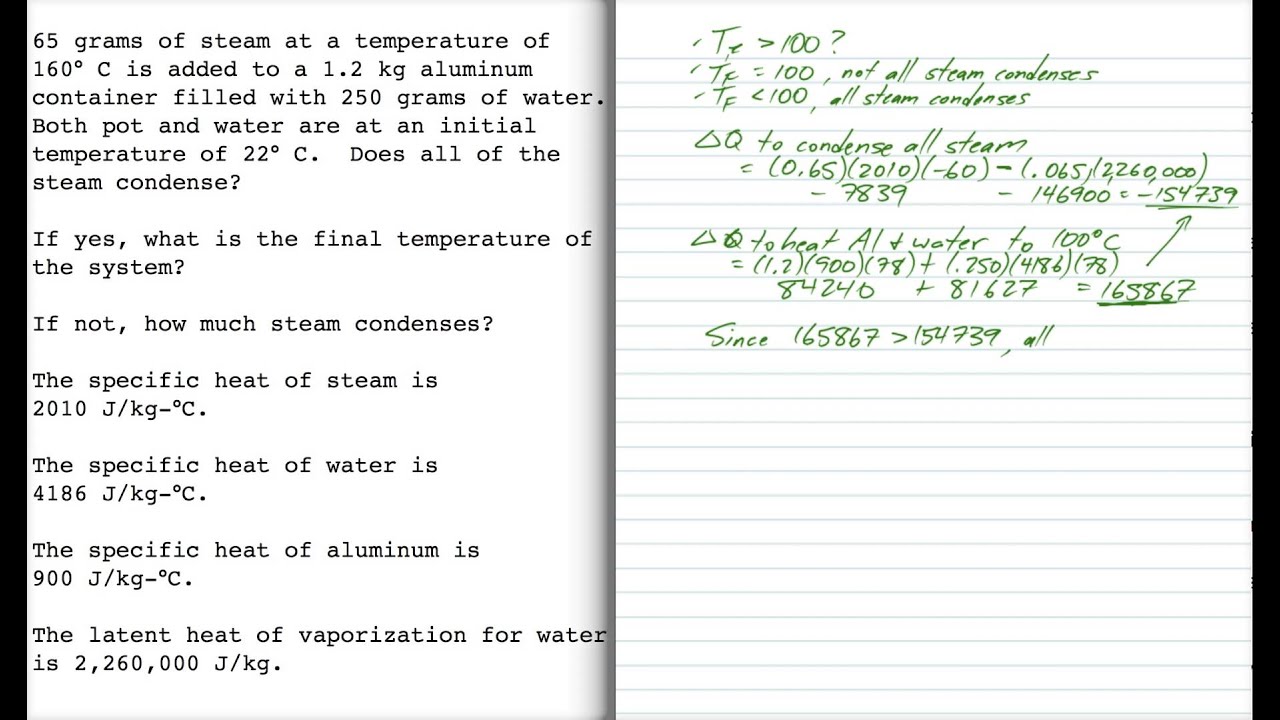 65 grams of steam at a temperature of
160° C is added to a 1.2 kg aluminum
container filled with 250 grams of water.
Both pot and water are at an initial
temperature of 22° C.  Does all of the
steam condense?
If yes, what is the final temperature of
the system?
If not, how much steam condenses?
The specific heat of steam is
2010 J/kg-°C.
The specific heat of water is
4186 J/kg-°C.
The specific heat of aluminum is
900 J/kg-°C.
The latent heat of vaporization for water
is 2,260,000 J/kg.
· T_F > 100 ?
· T_F = 100, not all steam condenses
· T_F < 100, all steam condenses
ΔQ to condense all steam
= (0.65)(2010)(-60) - (.065)(2,260,000)
- 7839 - 146900 = -154739
ΔQ to heat Al + water to 100°C
= (1.2)(900)(78) + (.250)(4186)(78)
84240 + 81627 = 165867
Since 165867 > 154739, all